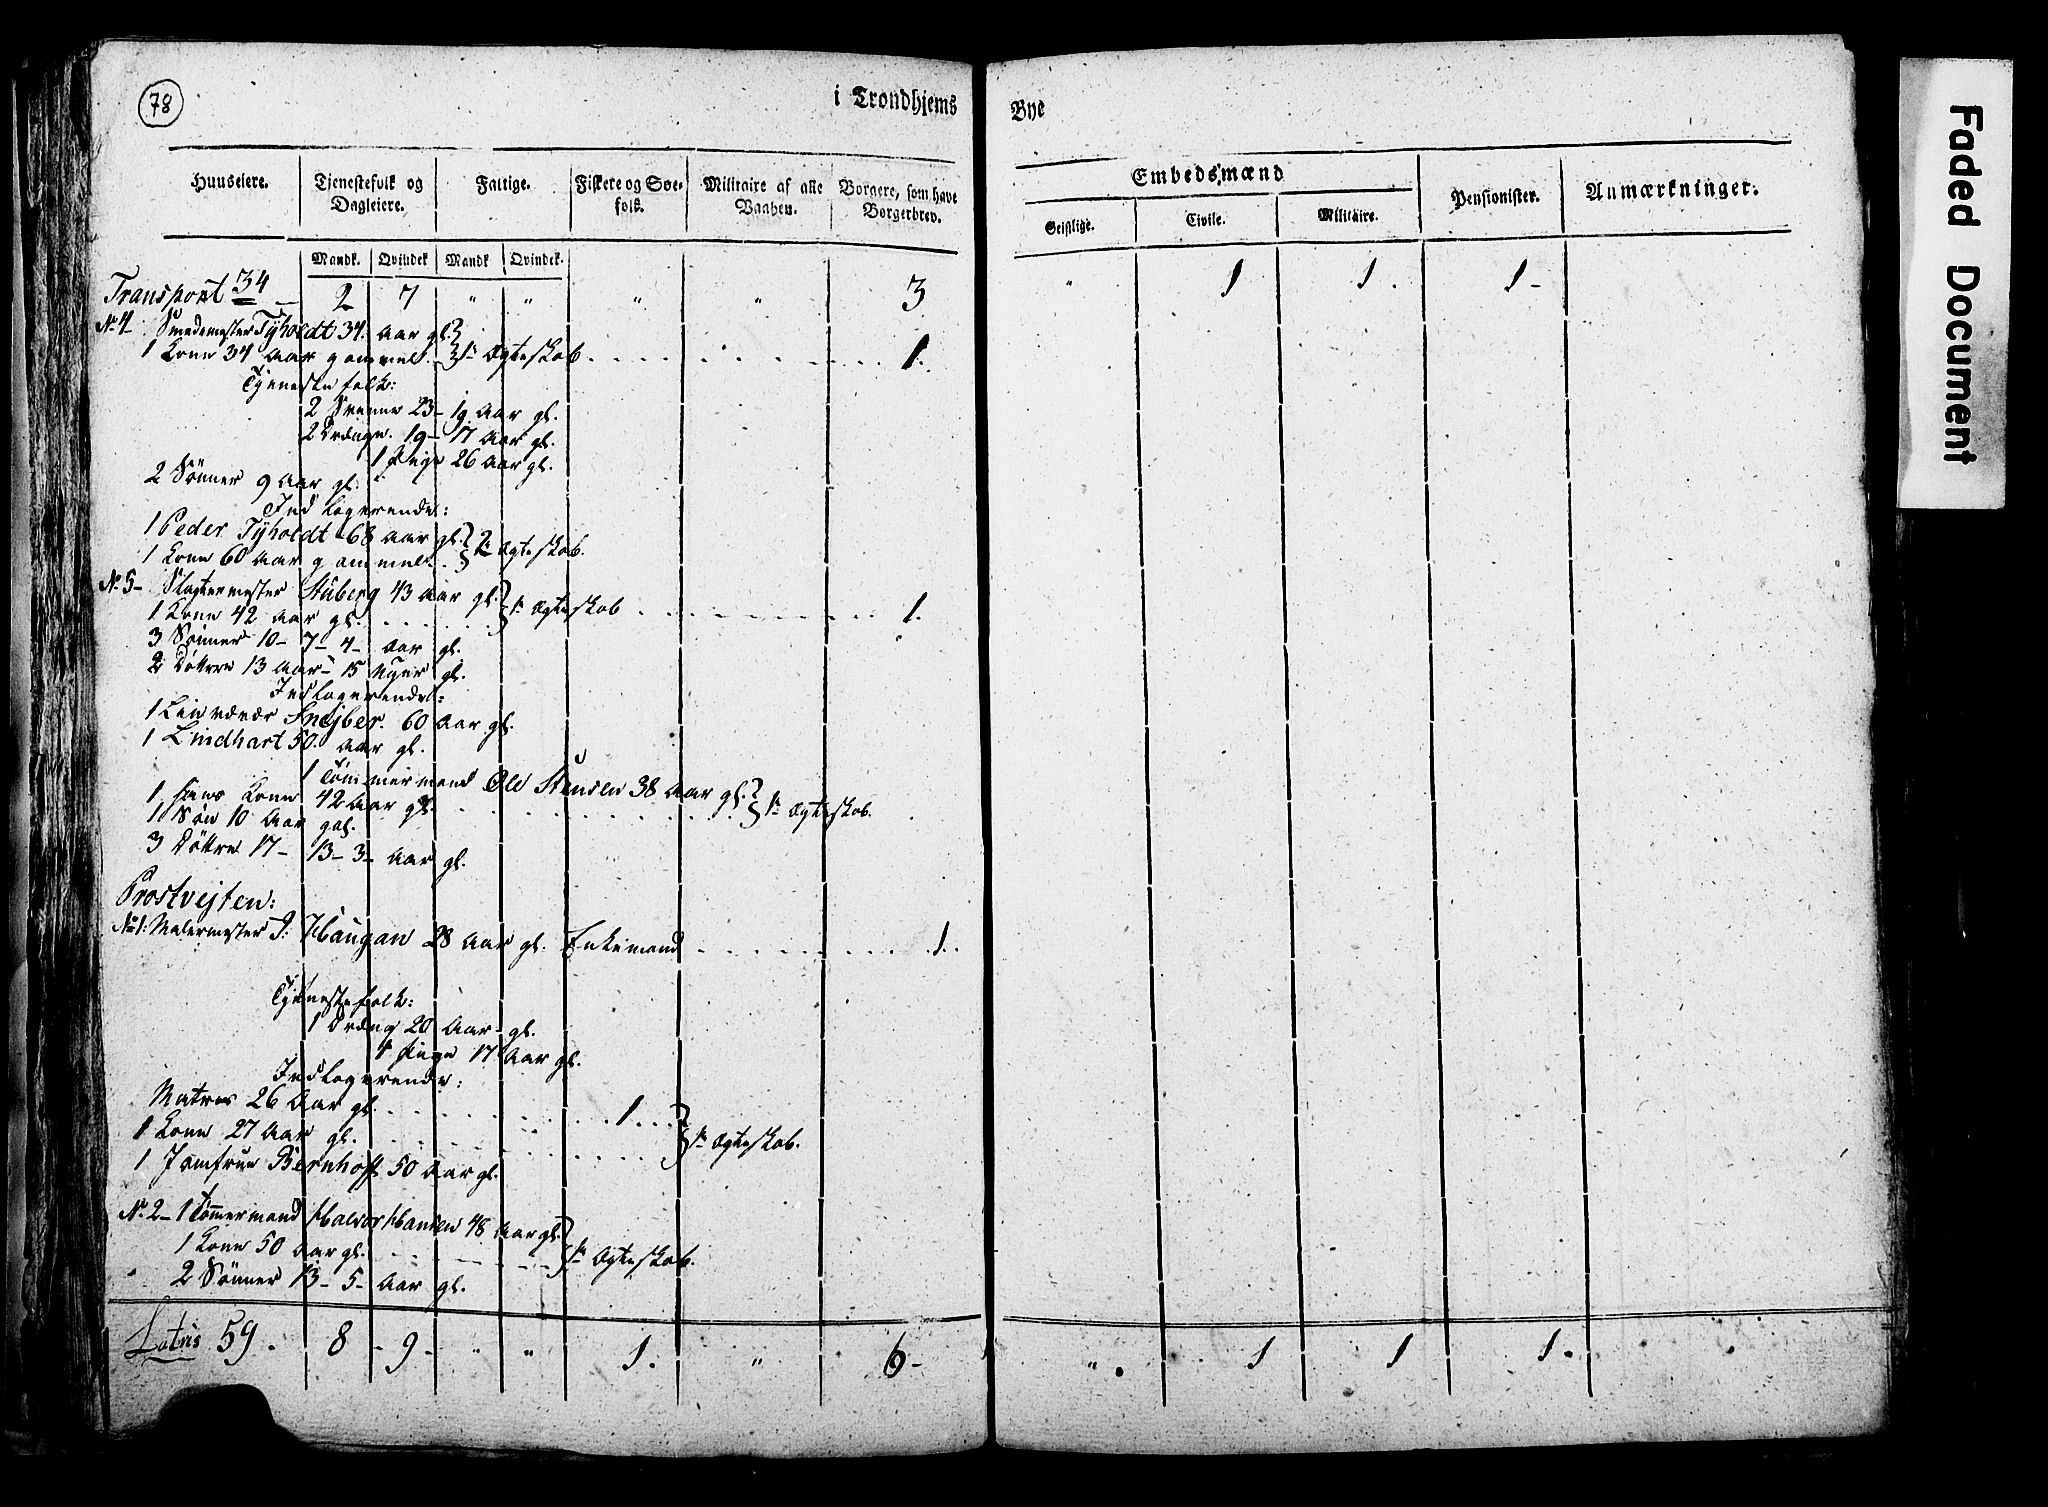 78
i Trondhjems
Bye
Huuseiere.
Tjenestefolk og Dagleiere.
Fattige.
Fiskere og Søe-folk.
Militaire af alle Vaaben.
Borgere, som have Borgerbrev.
Embedsmænd
Geistlige.
Civile.
Militaire.
Pensionister.
Anmærkninger.
Mandk. Qvindek Mandk Qvindek.
Transport 34 2 7 " " " " 3 " 1 1. 1-
No 4 Smedemester Tyholdt 34. Aar gl.
1 Kone 34 Aar gammel. 1te Ægteskab 1.
Tjenestefolk:
2 Svenne 23- 19 Aar gl.
2 Drenge. 19- 17 Aar gl.
1 Pige 26 Aar gl.
2 Sønner 9 Aar gl.
Indlogerende:
1 Peder Tyholdt 68 Aar gl.
1 Kone 60 Aar gammel. 2. Ægteskab.
No 5- Slagtermester Stüberg 43 Aar gl.
1 Kone 42 Aar gl. 1te Ægteskab 1.
3 Sønner 10- 7- 4- Aar gl.
2 Døttre 13 Aar- 15 Uger gl.
Indlogerende:
1 Linvæver Snejber. 60 Aar gl.
1 Lindhart 50. Aar gl.
1 Tømmermand Ole Stensen 38 Aar gl.
1 hans Kone 42 Aar gl. 1te Ægteskab.
1 Søn 10 Aar gal.
3 Døttre 17- 13- 3- Aar gl.
Prostvejten:
No 1: Malermester J: Haugan 28 Aar gl. Enkemand 1.
Tjenestefolk:
1 Dreng 20 Aar gl.
1 Pige 17 Aar gl.
Indlogerende:
Matros 26 Aar gl. 1
1 Kone 27 Aar gl. 1te Ægteskab.
1 Jomfrue Bernhoff 50 Aar gl.
No 2- 1 Tømmermand Halvor Hansen 48 Aar gl.
1 Kone 50 Aar gl. 1te Ægteskab.
2 Sønner 13- 5- Aar gl.
Latus 59. 8 - 9 - " " 1. " 6- " 1 1 1.
Faded Document